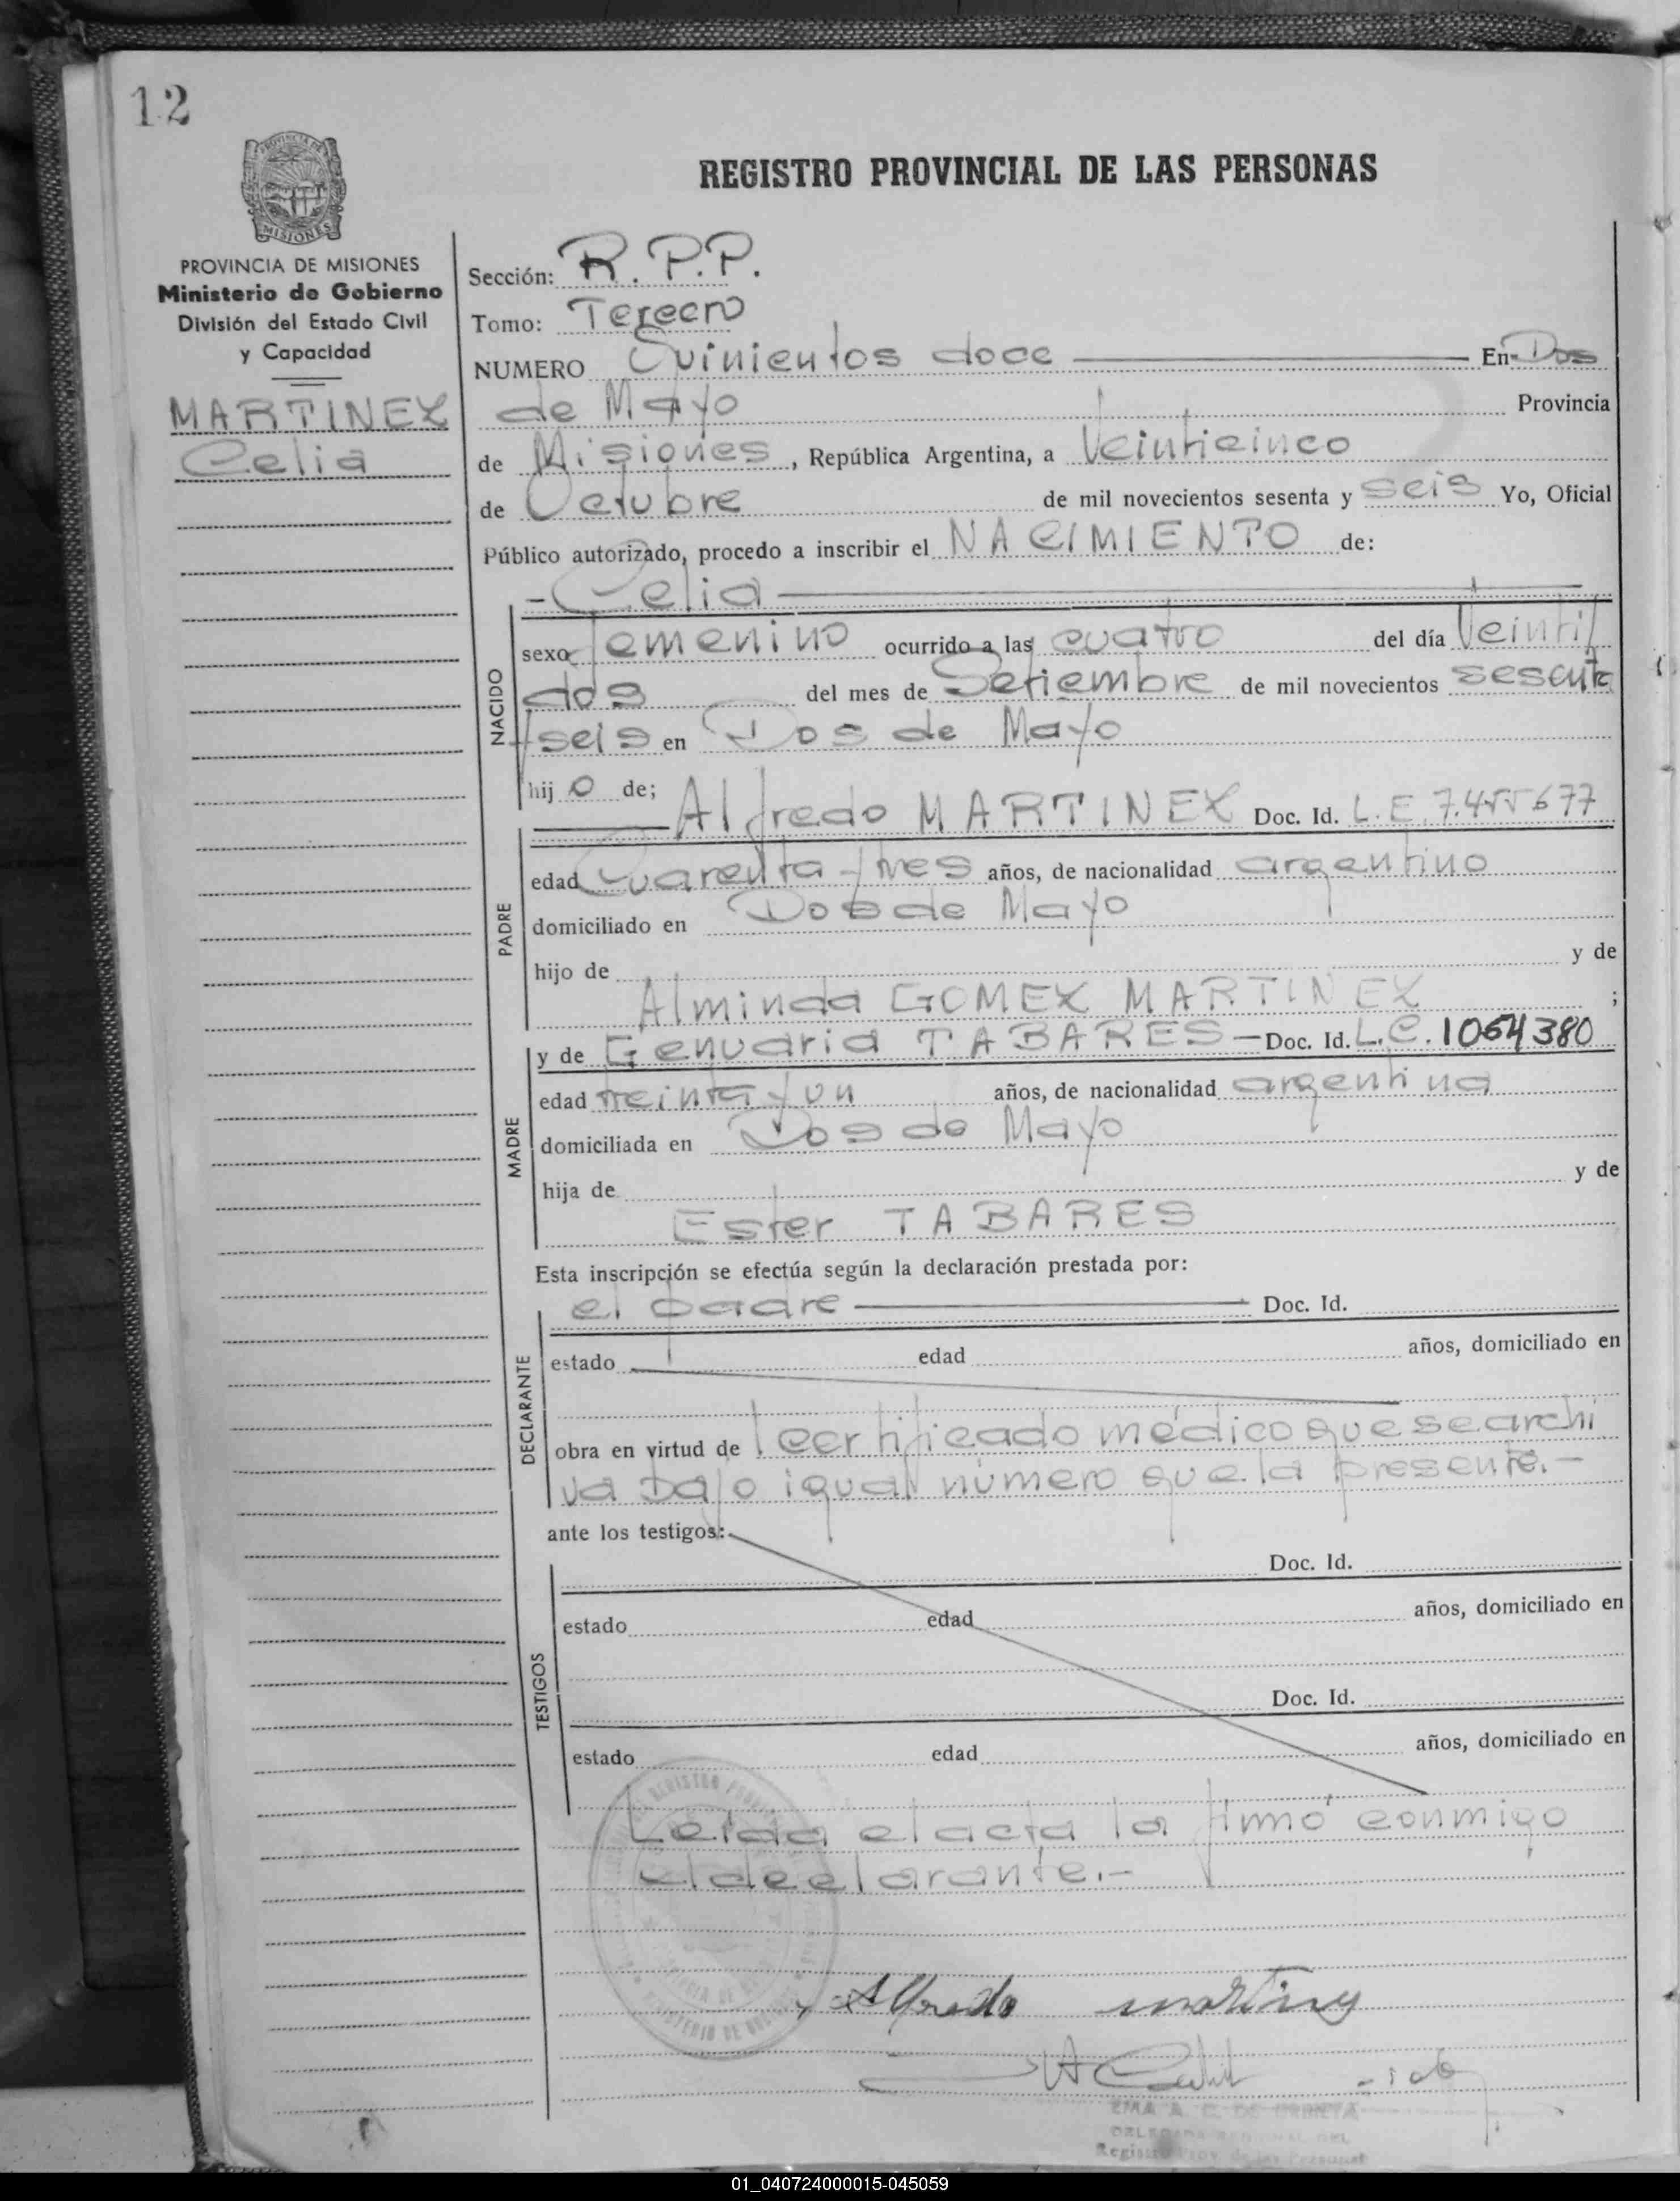 12
PROVINCIA DE
MISIONES
REGISTRO PROVINCIAL DE LAS PERSONAS
PROVINCIA DE MISIONES
Ministerio de Gobierno
División del Estado Civil
y Capacidad
MARTINEZ
Celia
Sección: R. P.P.
Tomo: Tercero
NUMERO Quinientos doce En Dos
de Mayo Provincia
de Misiones, República Argentina, a Veinticinco
de Octubre de mil novecientos sesenta y seis Yo, Oficial
Público autorizado, procedo a inscribir el NACIMIENTO de:
- Celia
NACIDO
sexo femenino ocurrido a las cuatro del día Veinti
dos del mes de Setiembre de mil novecientos sesenta
y seis en Dos de Mayo
hijo de; Alfredo MARTINEZ Doc. Id. L.E. 7.455677
PADRE
edad Cuarenta y tres años, de nacionalidad argentino
domiciliado en Dos de Mayo
hijo de y de
Alminda GOMEZ MARTINEZ ;
y de Genuaria TABARES — Doc. Id. L.C. 1064380
MADRE
edad treinta y un años, de nacionalidad argentina
domiciliada en Dos de Mayo
hija de y de
Ester TABARES
Esta inscripción se efectúa según la declaración prestada por:
el padre Doc. Id.
DECLARANTE
estado edad años, domiciliado en
obra en virtud de certificado médico que se archi
va bajo igual número que la presente.-
ante los testigos:
Doc. Id.
TESTIGOS
estado edad años, domiciliado en
Doc. Id.
estado edad años, domiciliado en
Leida el acta la firmó conmigo
el declarante.-
Alfredo martinez
EMA A. C. DE URBIETA
Registro Prov. de las Personas
01_040724000015-045059